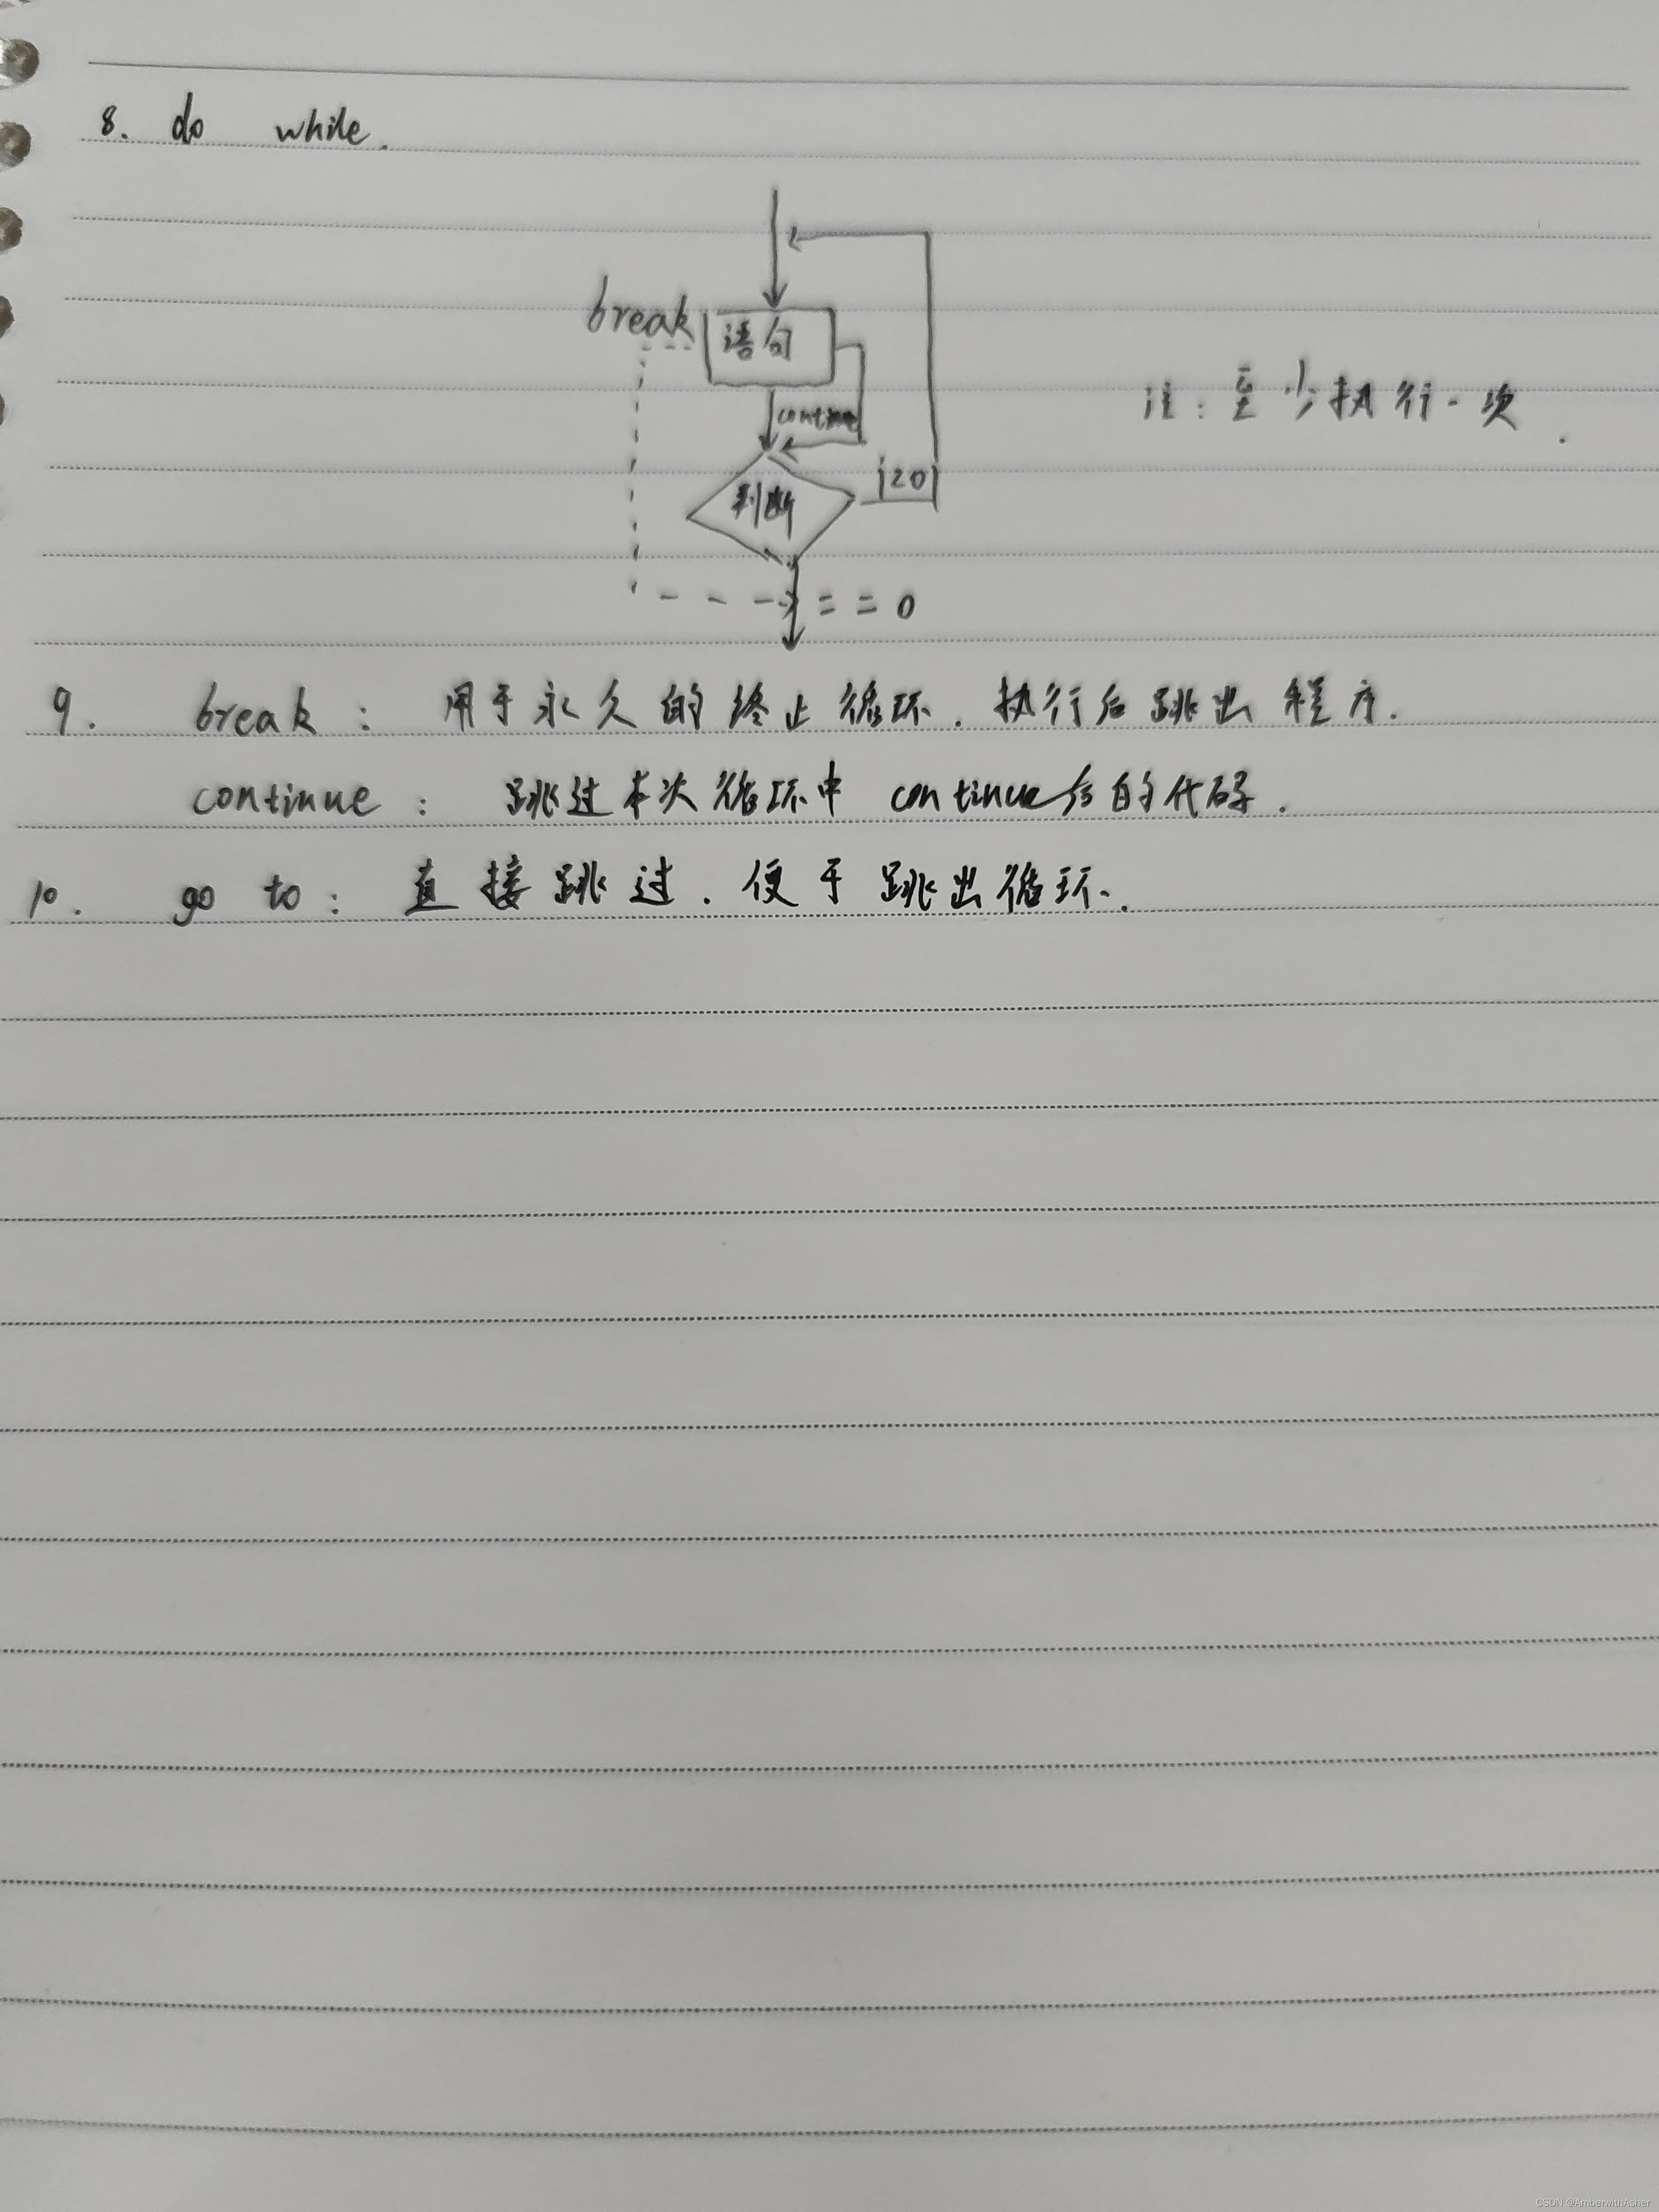 8. do while.
break
语句
continue
注：至少执行一次.
判断
== 0
9. break： 用于永久的终止循环.执行后跳出程序.
continue： 跳过本次循环中 continue后的代码.
10. go to： 直接跳过.便于跳出循环.
CSDN @AmberwithAsher